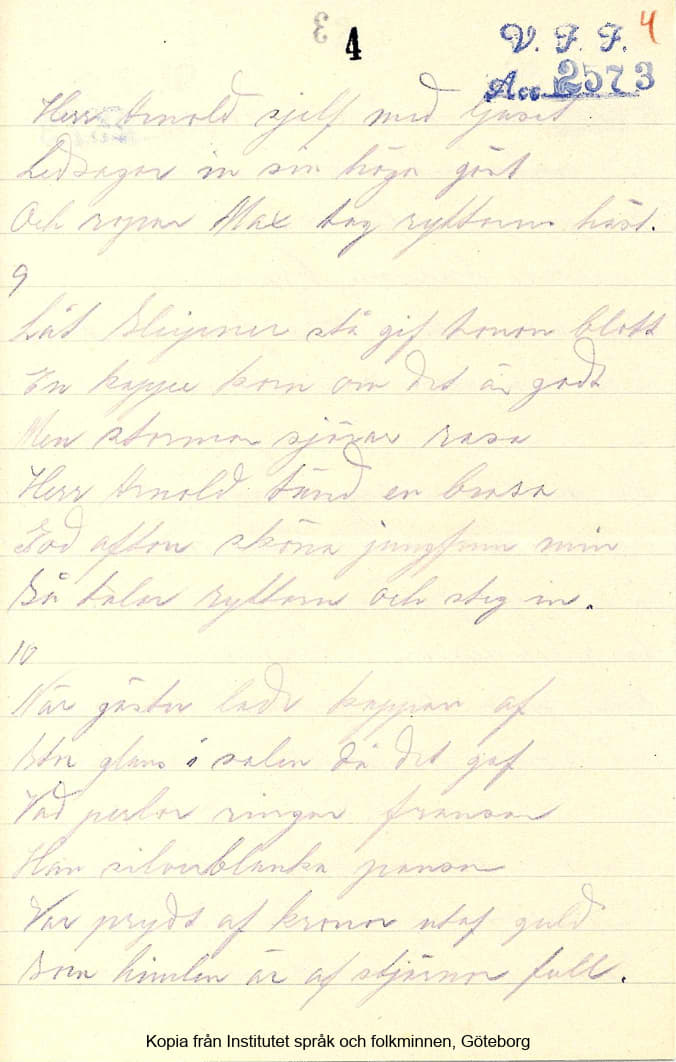 4
V. F. F. 4
Acc. 2573
Herr Arnold sjelf med ljuset
Ledsagar in sin höga gäst
Och ropar Max tag ryttarns häst.
9
Låt Sleipner stå gif honom blott
En kappe korn om det är godt
Men stormar sjöar rasa
Herr Arnold tänd en brasa
God afton sköna jungfrun min
Så talar ryttarn och steg in.
10
När gästen lade kappan af
Stor glans i salen då det gaf
Vad perlor ringar fransar
Han silverblanka pansar
Var prydt af kronor utaf guld
Som himlen är af stjärnor full.
Kopia från Institutet språk och folkminnen, Göteborg